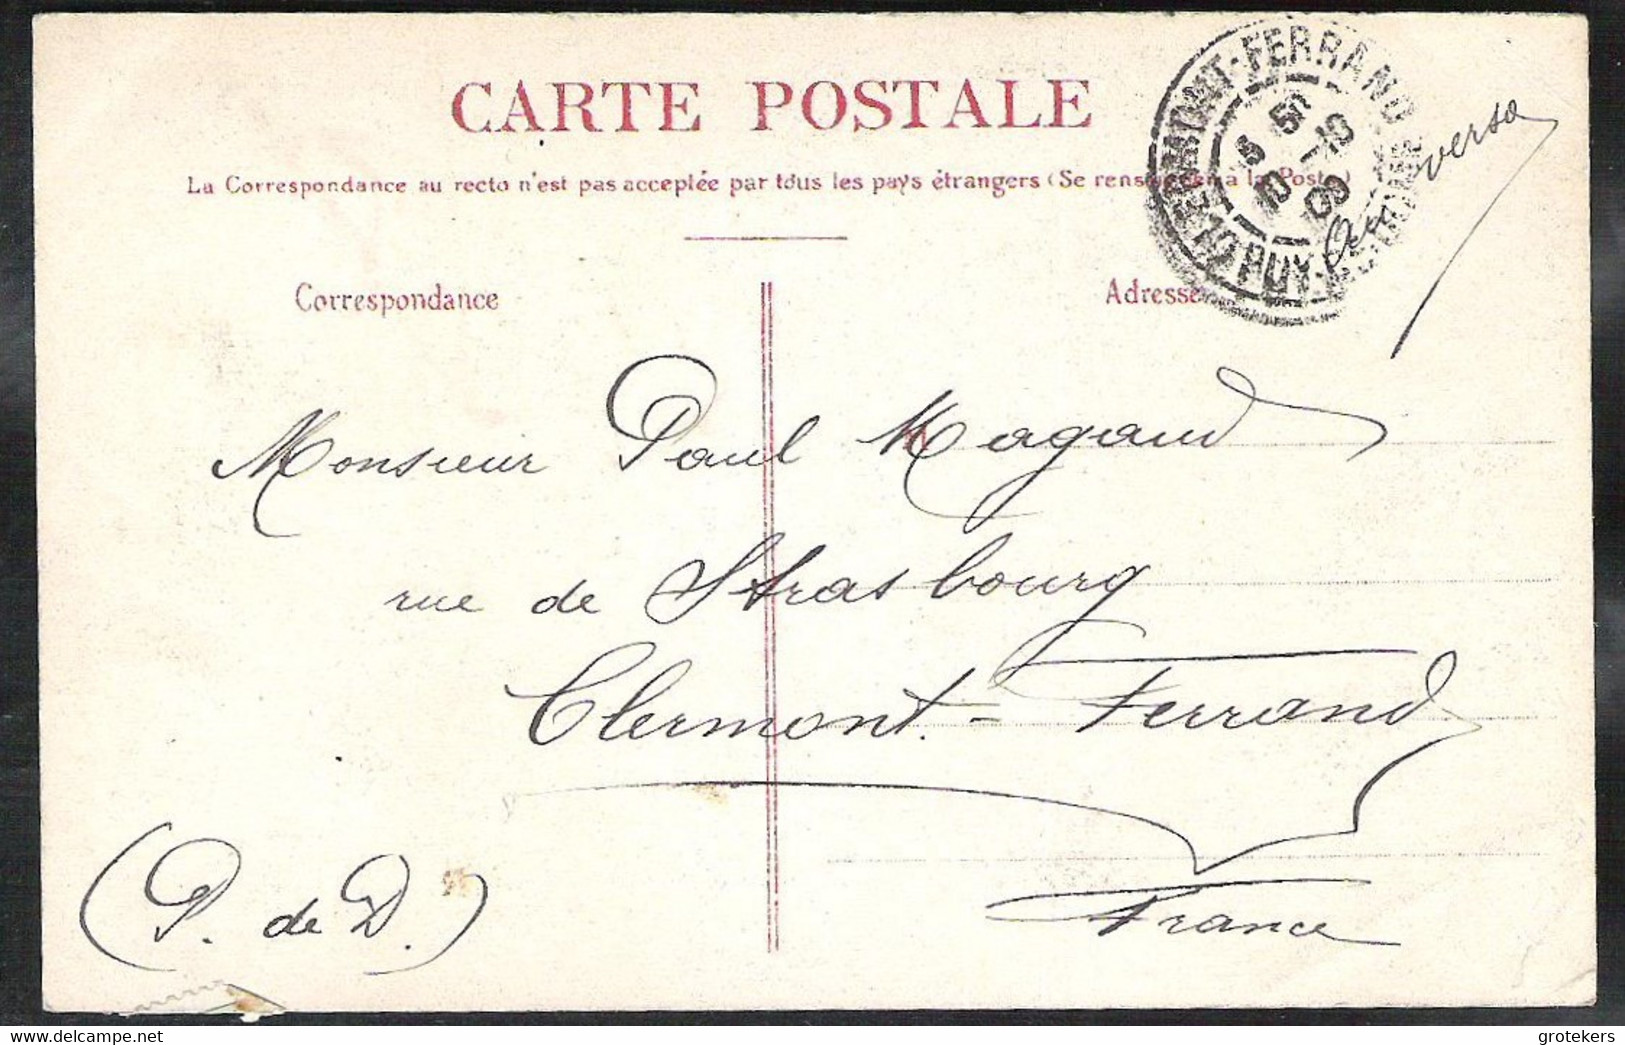 CARTE POSTALE
La Correspondance au recto n'est pas acceptée par tous les pays étrangers (Se renseigner à la Poste)
CLERMONT-FERRAND
PUY-DE-DOME
Au verso
Correspondance
Adresse
Monsieur Paul Magaud
rue de Strasbourg
Clermont-Ferrand
(P. de D.)
France
grotekers